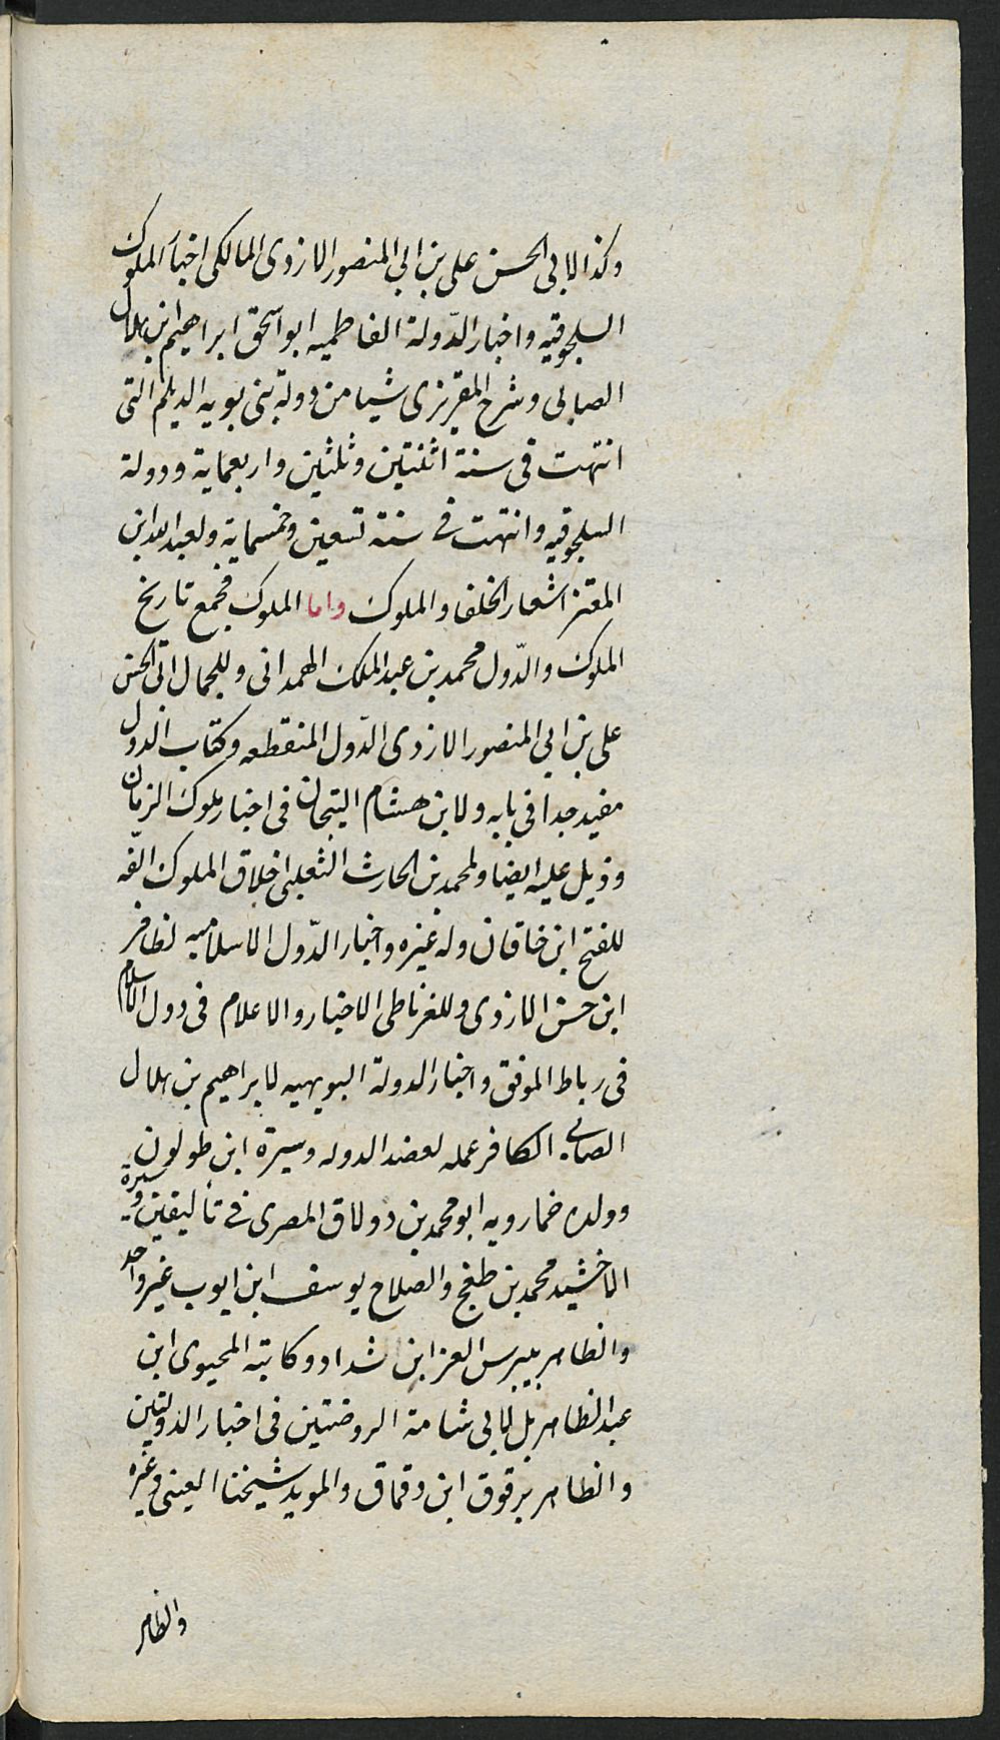 وكذا لابى الحسن على بن ابى المنصور الازدى المالكى اخبار الملوك
السلجوقيه واخبار الدّولة الفاطميه ابو اسحق ابراهيم ابن هلال
الصابى وشرح المقريزى شيا من دولة بنى بويه الديلم التى
انتهت فى سنة اثنتين وثلثين واربعماية ودولة
السلجوقيه وانتهت فى سنة تسعين وخمسماية ولعبد الله ابن
المعتز اشعار الخلفا والملوك واما الملوك فجمع تاريخ
الملوك والدّول محمد بن عبد الملك الهمدانى وللجمال ابى الحسن
على بن ابى المنصور الازدى الدّول المنقطعه وكتاب الدول
مفيد جدا فى بابه ولابن هشام التيجان فى اخبار ملوك الزمان
وذيل عليه ايضا ولمحمد بن الحارث الثعلبى اخلاق الملوك الفه
للفتح ابن خاقان وله غيره واخبار الدّول الاسلاميه لظافر
ابن حسن الازدى وللغرناطى الاخبار والاعلام فى دول الاسلام
فى رباط الموفق واخبار الدولة البويهيه لابراهيم بن هلال
الصابى الكافر عمله لعضد الدوله وسيرة ابن طولون
وولده خمارويه ابو محمد بن دولاق المصرى فى تأليفين وسيرة
الاخشيد محمد بن طغج والصلاح يوسف ابن ايوب غير واحد
والظاهر بيبرس العز ابن شداد وكاتبه المحيوى ابن
عبد الظاهر بل لابى شامة الروضتين فى اخبار الدولتين
والظاهر برقوق ابن دقماق والمويد شيخنا العينى وغيره
والظاهر